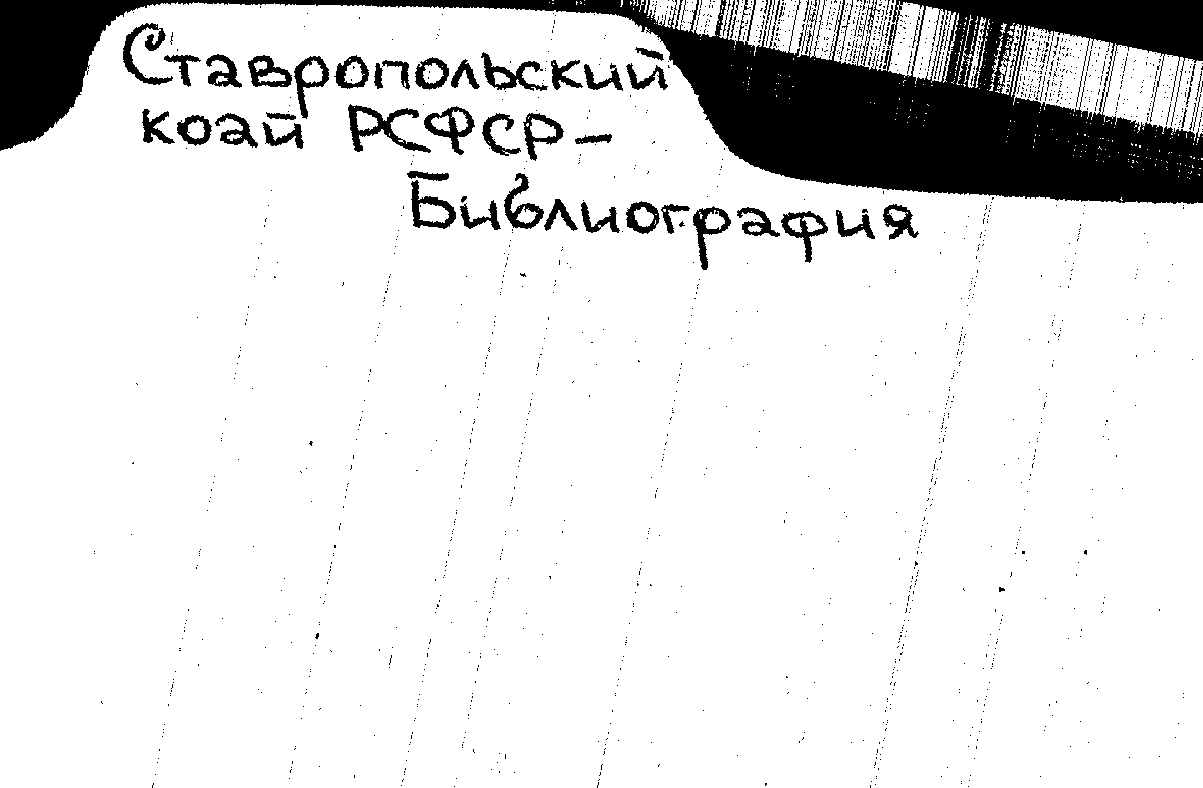 Ставропольский
край РСФСР-
Библиография